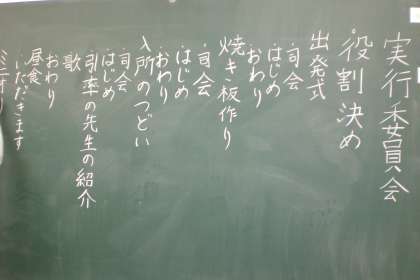 実行委員会
役割決め
出発式
・司会
・はじめ
・おわり
焼き板作り
・司会
・はじめ
・おわり
入所のつどい
・司会
・はじめ
・引率の先生の紹介
・歌
・おわり
昼食
・いただきます